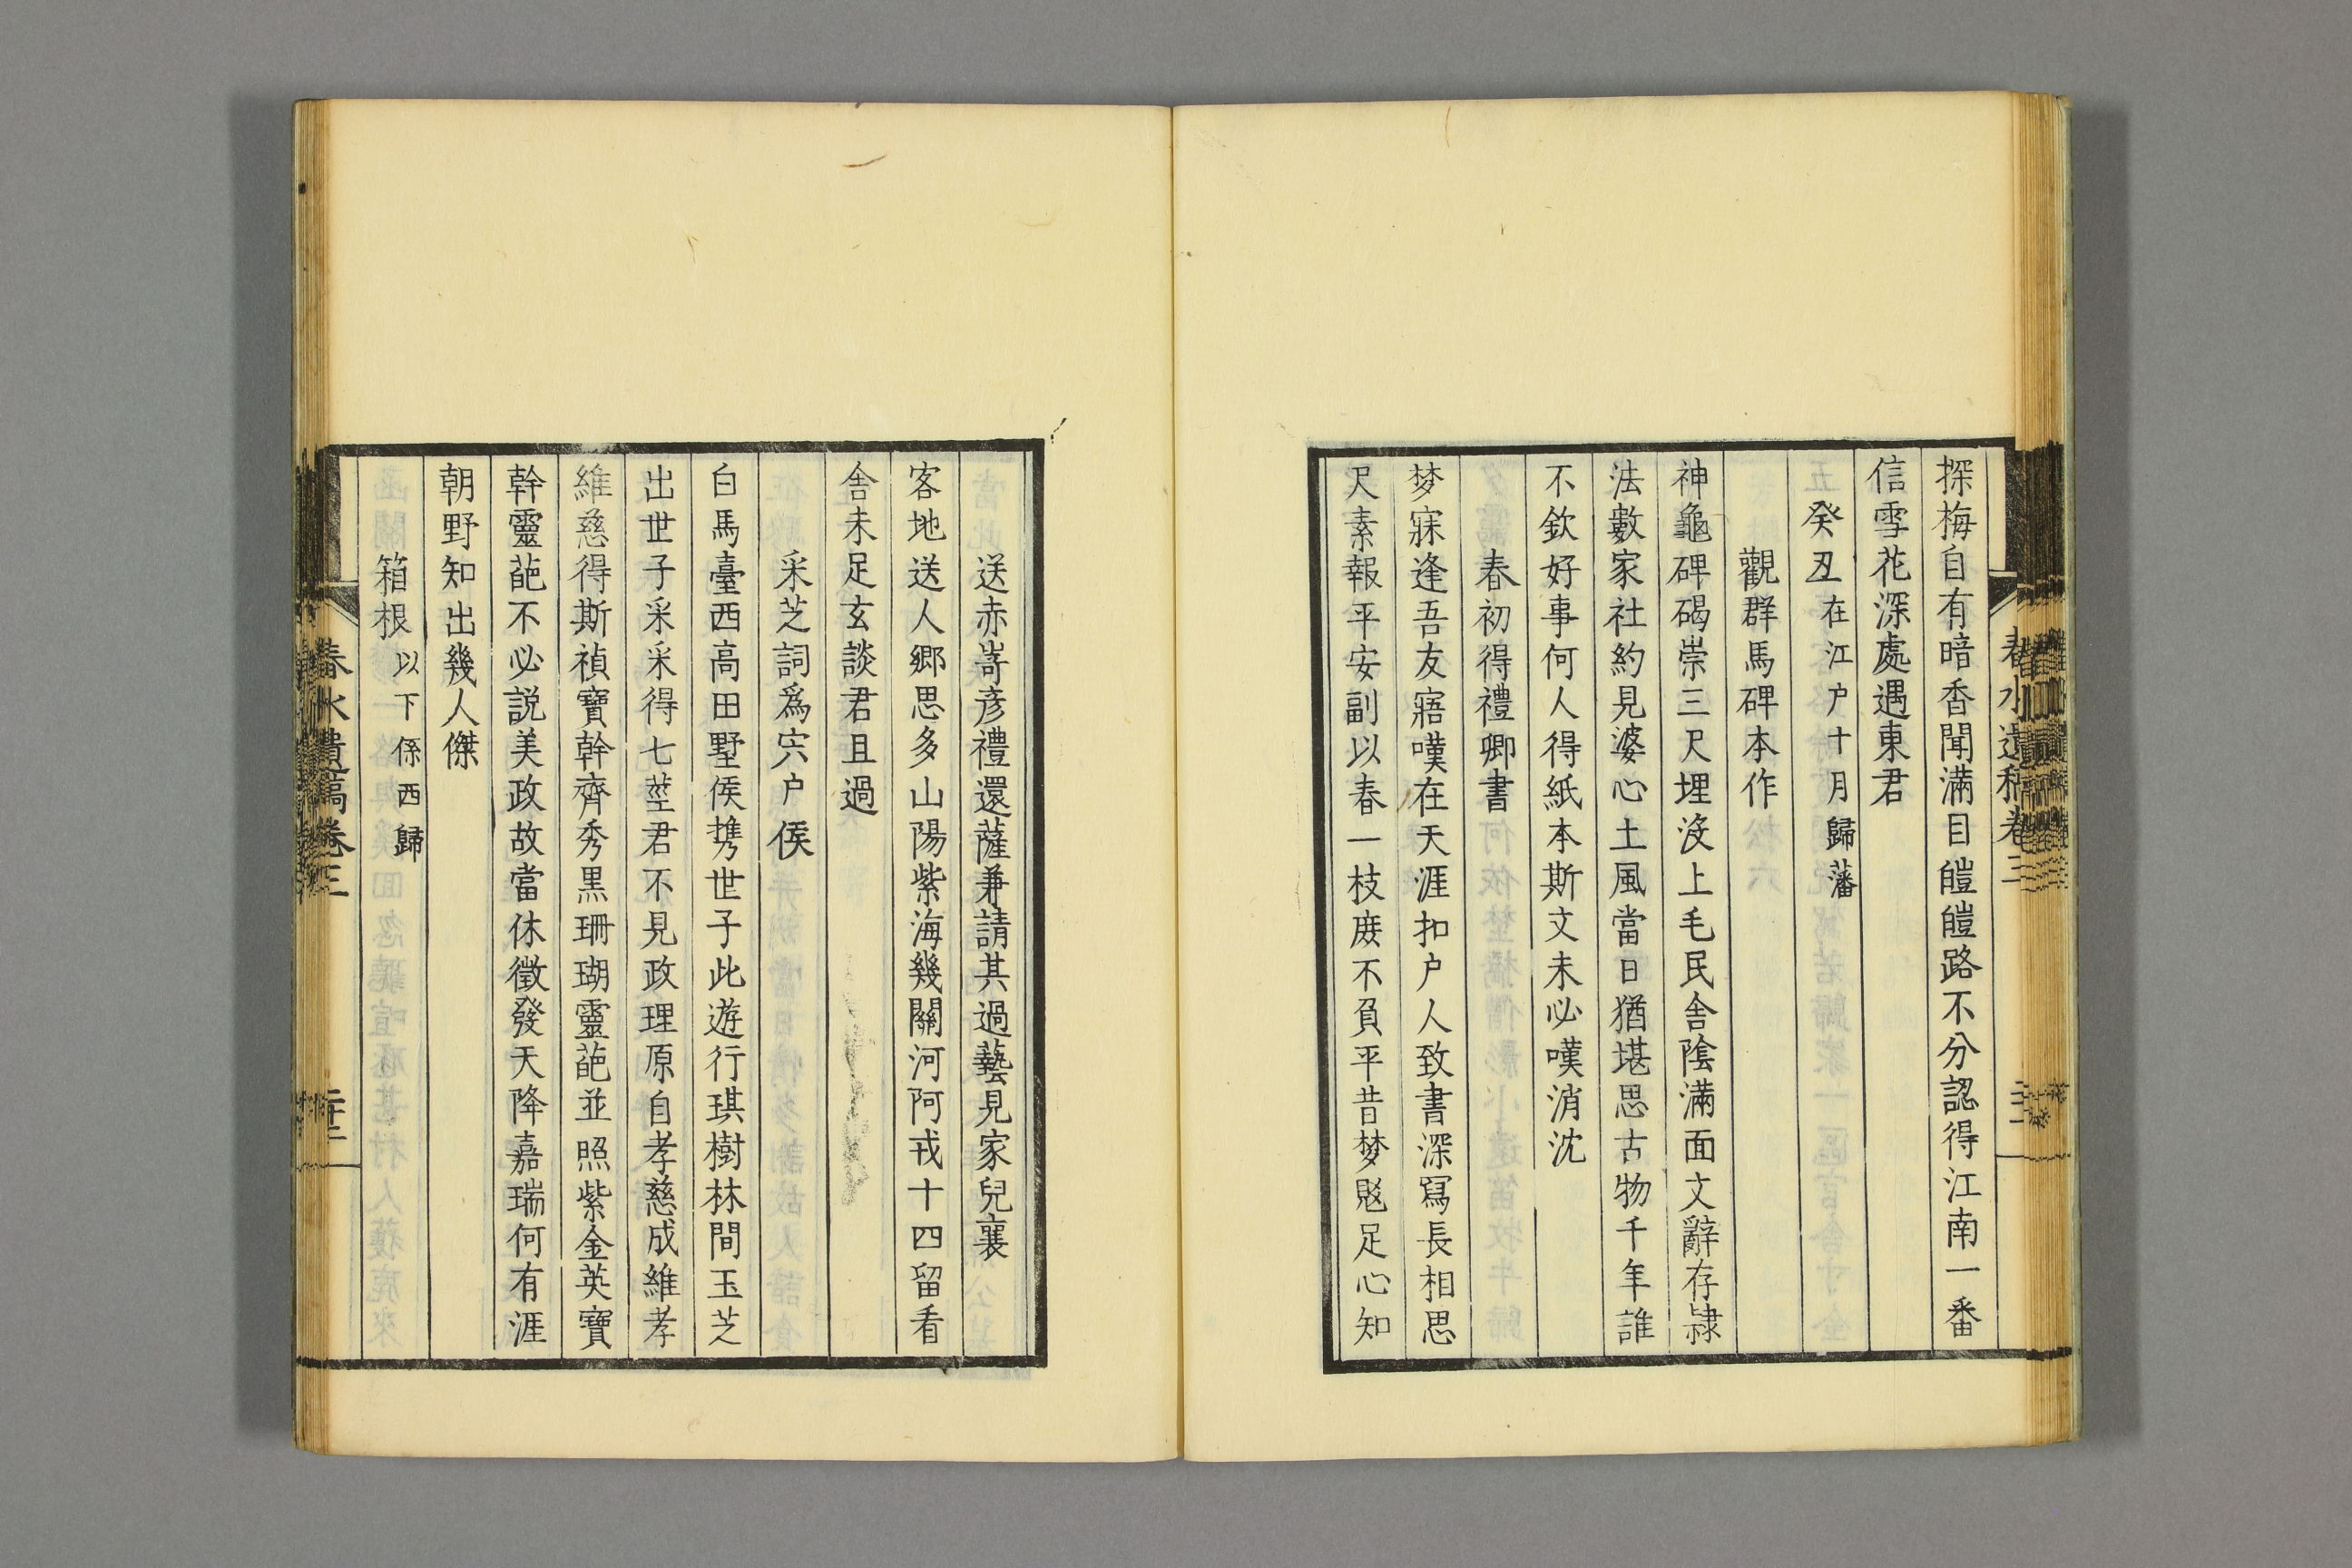 探梅自有暗香聞滿目皚皚路不分認得江南一番
信雪花深處遇東君
癸丑在江户十月歸藩
觀群馬碑本作
神龜碑碣崇三尺埋没上毛民舍陰滿面文辭存隷
法數家社約見婆心土風當日猶堪思古物千年誰
不欽好事何人得紙本斯文未必嘆消沈
春初得禮卿書
梦寐逢吾友寤嘆在天涯扣户人致書深冩長相思
尺素報平安副以春一枝庻不負平昔梦足心知
送赤嵜彦禮還薩兼請其過藝見家兒襄
客地送人郷思多山陽紫海幾關河阿戎十四留看
舎未足玄談君且過
采芝詞爲宍户侯
白馬臺西高田墅侯携世子此遊行琪樹林間玉芝
出世子采采得七莖君不見政理原自孝慈成維孝
維慈得斯禎寶幹齊秀黒珊瑚靈葩並照紫金英寶
幹靈葩不必説美政故當休徵發天降嘉瑞何有涯
朝野知出幾人傑
箱根以下係西歸
春水遺稿卷三